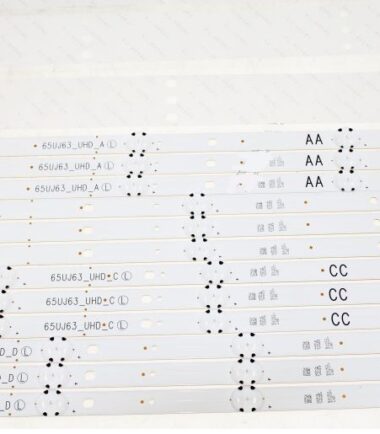 65UJ63_UHD_A Ⓛ AA
65UJ63_UHD_A Ⓛ AA
65UJ63_UHD_A Ⓛ AA
65UJ63_UHD_C Ⓛ CC
65UJ63_UHD_C Ⓛ CC
65UJ63_UHD_C Ⓛ CC
D_D Ⓛ
D_D Ⓛ
_D Ⓛ